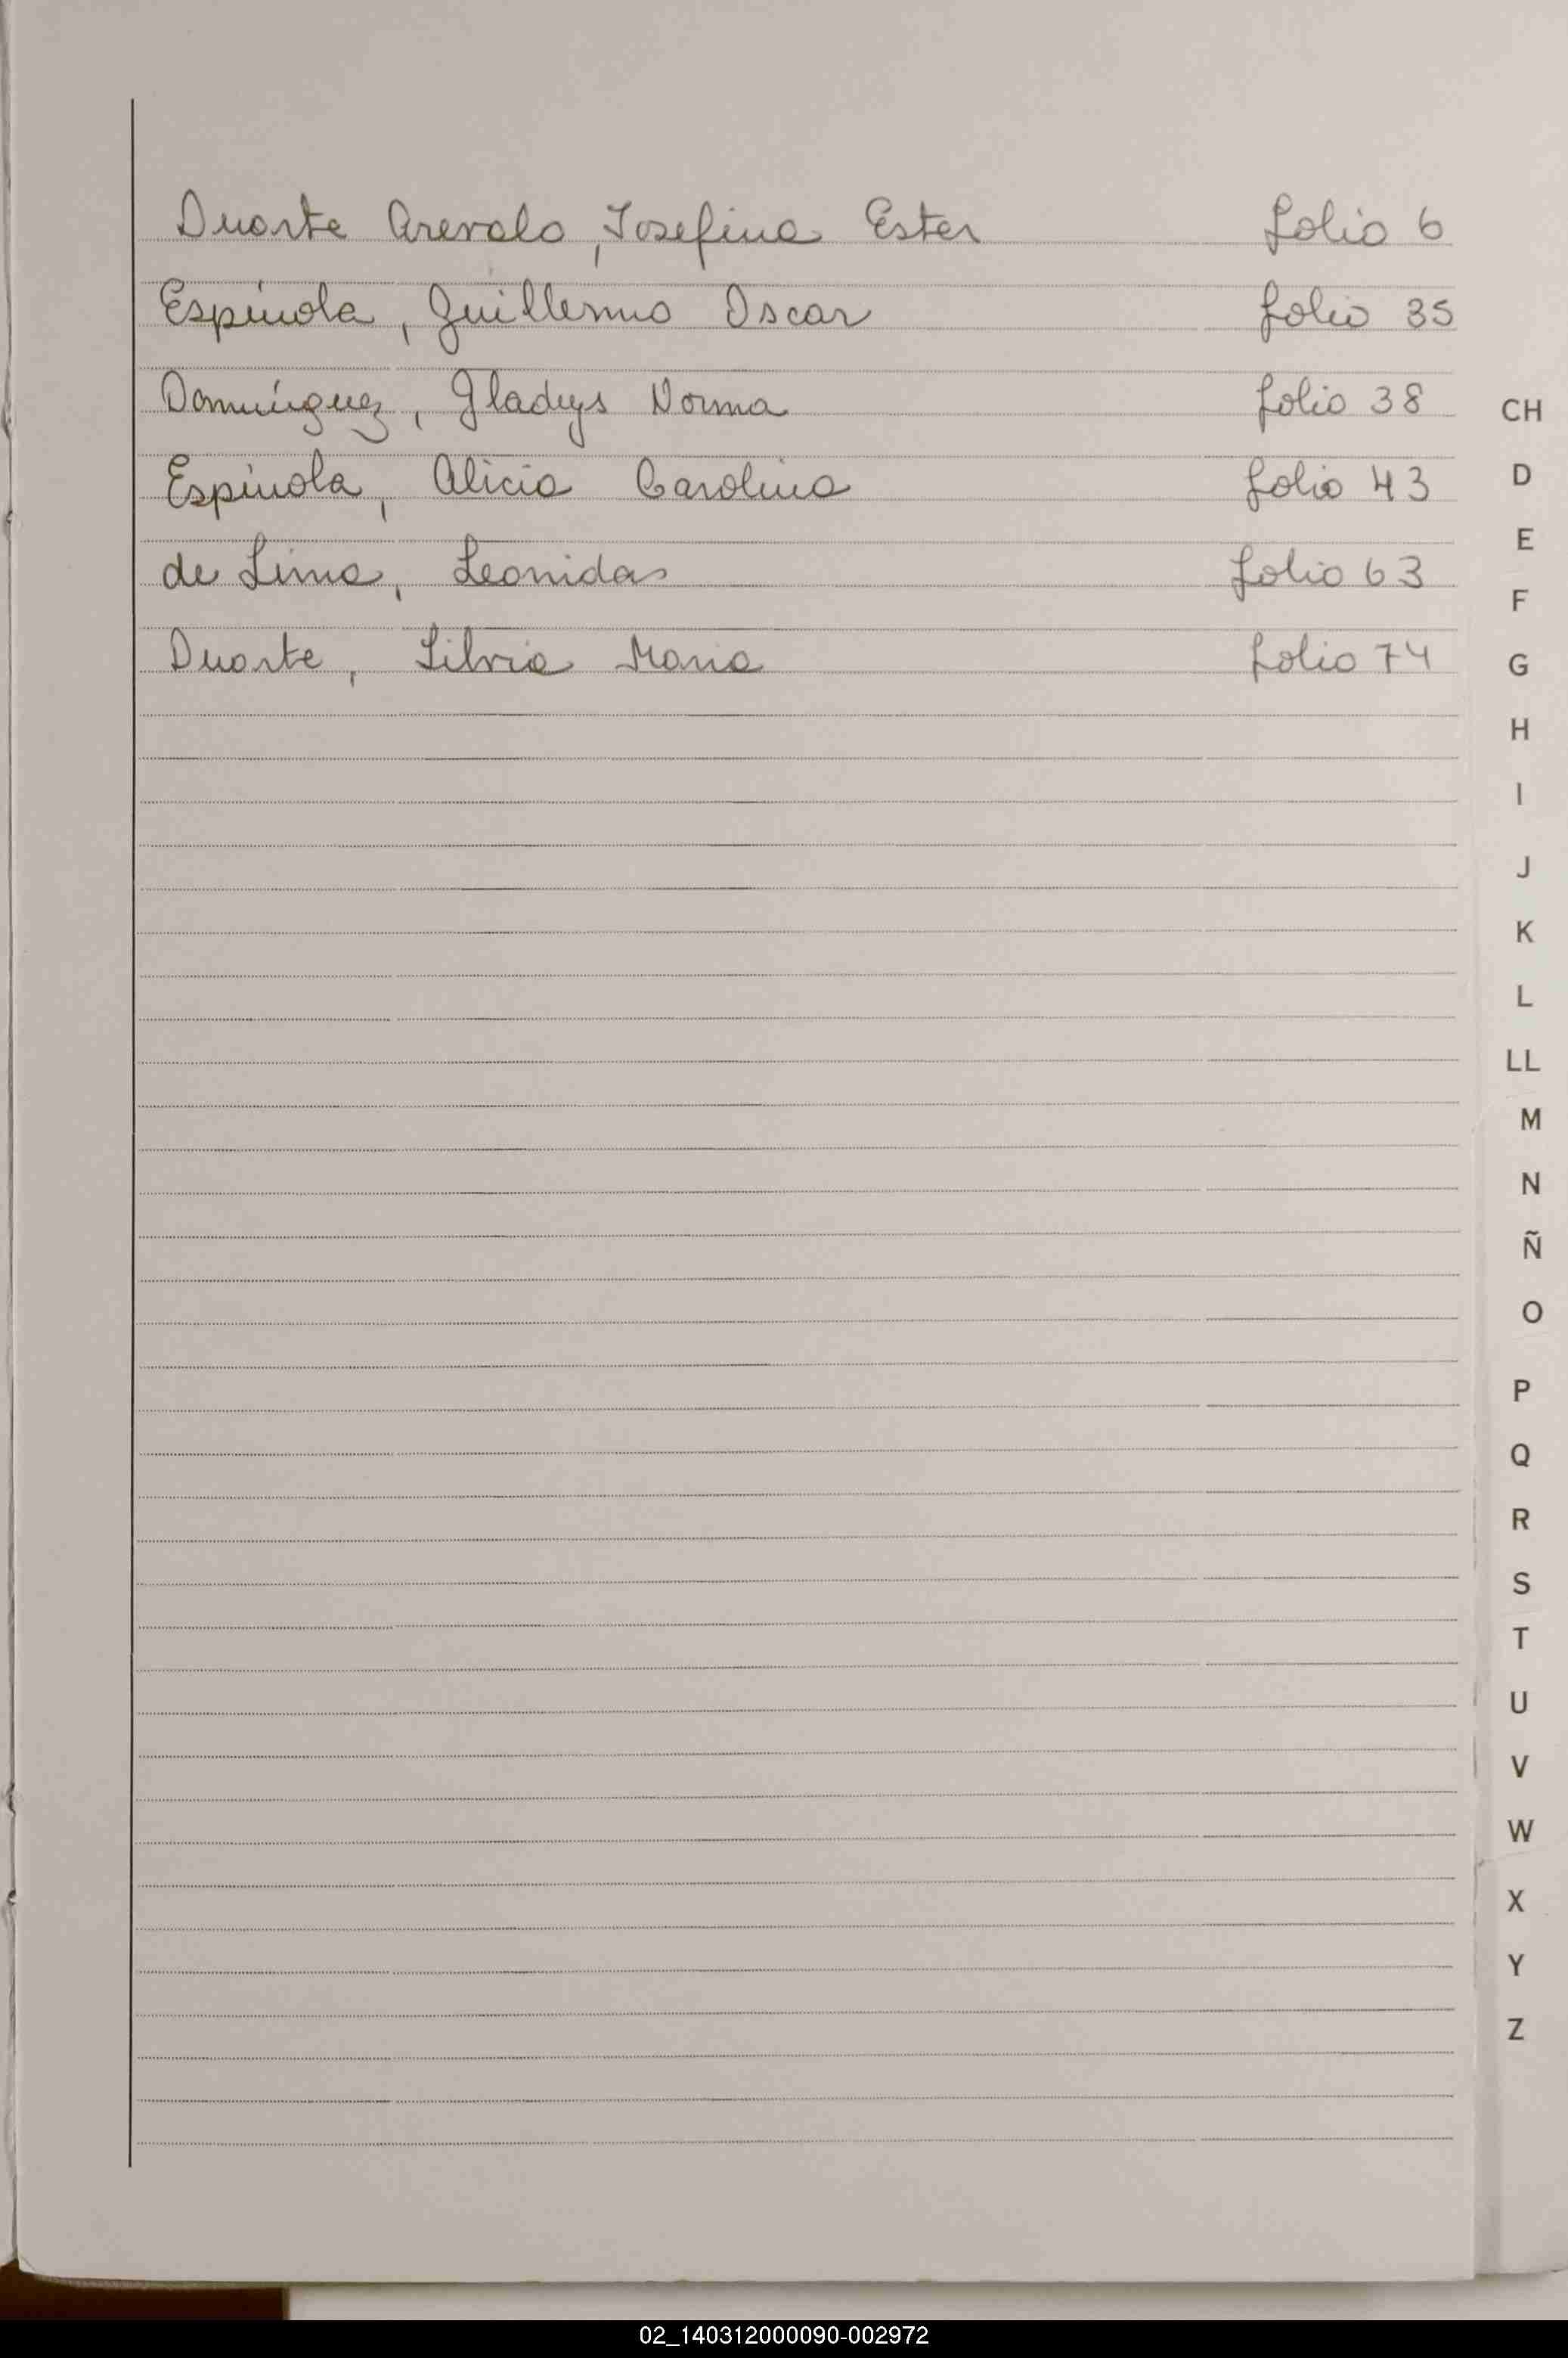 Duarte Arevalo, Josefina Ester folio 6
Espínola, Guillermo Oscar folio 35
Domínguez, Gladys Norma folio 38
Espínola, Alicia Carolina folio 43
de Lima, Leonidas folio 63
Duarte, Silvia Maria folio 74
CH
D
E
F
G
H
I
J
K
L
LL
M
N
Ñ
O
P
Q
R
S
T
U
V
W
X
Y
Z
02_140312000090-002972